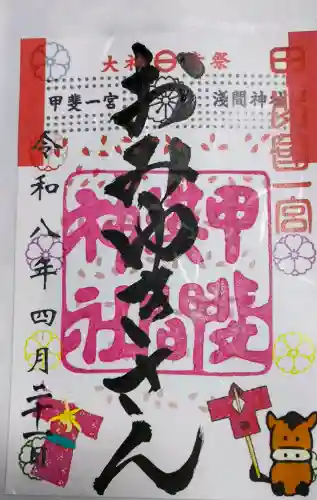 大神日幸祭
甲斐一宮
浅間神社
おみゆきさん
甲斐國一宮
甲斐
浅間
神社
令和八年四月二十一日